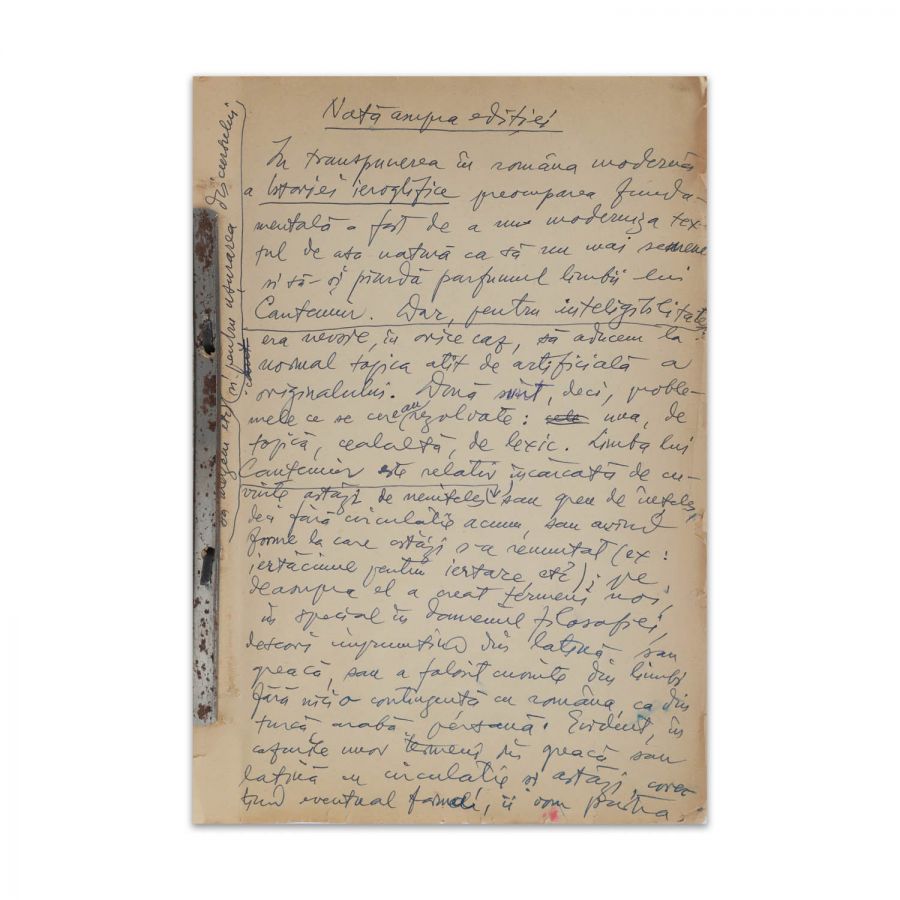 Notă asupra ediției
În transpunerea în româna modernă
a Istoriei ieroglifice preocuparea funda-
mentală a fost de a nu moderniza tex-
tul de așa natură ca să nu mai semene
și să-și piardă parfumul limbii lui
Cantemir. Dar, pentru inteligibilitate
era nevoie, în orice caz, să aducem la
normal topica atît de artificială a
originalului. Două sînt, deci, proble-
mele ce se cereau rezolvate: una, de
topică, cealaltă, de lexic. Limba lui
Cantemir este relativ încărcată de cu-
vinte astăzi de neînțeles sau greu de înțeles,
deci fără circulație acum, sau avînd
forme la care astăzi s-a renunțat (ex:
iertăciune pentru iertare, etc);
deasupra el a creat termeni noi,
în special în domeniul filosofiei,
deseori împrumutînd din latină sau
greacă, sau a folosit cuvinte din limbi
fără nici o contingență cu româna, ca din
turcă, arabă, persană. Evident, în
cazurile unor termeni din greacă sau
latină cu circulație și astăzi, corec-
tînd eventual forma, îi vom păstra.
să mergem și pentru ușurarea discursului